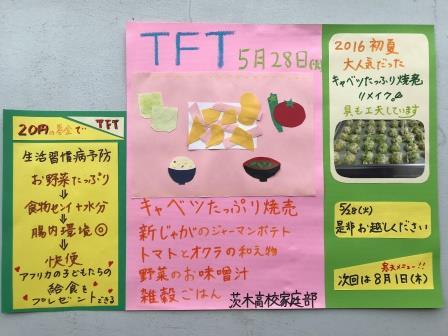 20円の募金で TFT
生活習慣病予防
お野菜たっぷり
食物センイ+水分
腸内環境◎
快便
アフリカの子どもたちの
給食を
プレゼントできる
TFT 5月28日(火)
キャベツたっぷり焼売
新じゃがのジャーマンポテト
トマトとオクラの和え物
野菜のお味噌汁
雑穀ごはん
茨木高校家庭部
2016初夏
大人気だった
キャベツたっぷり焼売
リメイク♪
具も工夫しています
5/28(火)
是非お越しください
寒天メニュー!!
次回は8月1日(木)